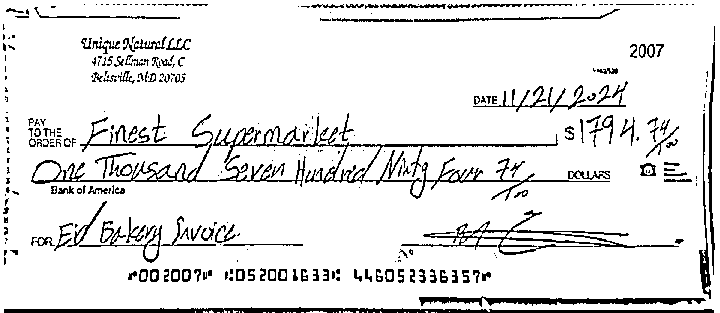 Unique Natural LLC
4715 Sellman Road, C
Beltsville, MD 20705
2007
DATE 11/21/2024
PAY TO THE ORDER OF Finest Supermarket $ 1794.74/100
One Thousand Seven Hundred Ninty Four 74/100 DOLLARS
Bank of America
FOR Bakery Invoice
⑈002007⑈ ⑆052001633⑆ 446052336357⑈